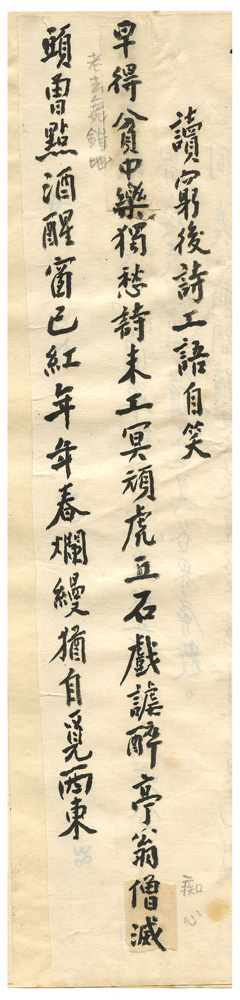 讀窮後詩工語自笑
早得貧中樂獨愁詩未工冥頑虎丘石戲謔醉亭翁僧滅
頭曾點酒醒窗已紅年年春爛縵猶自覓西東
老去無錐地
癡心